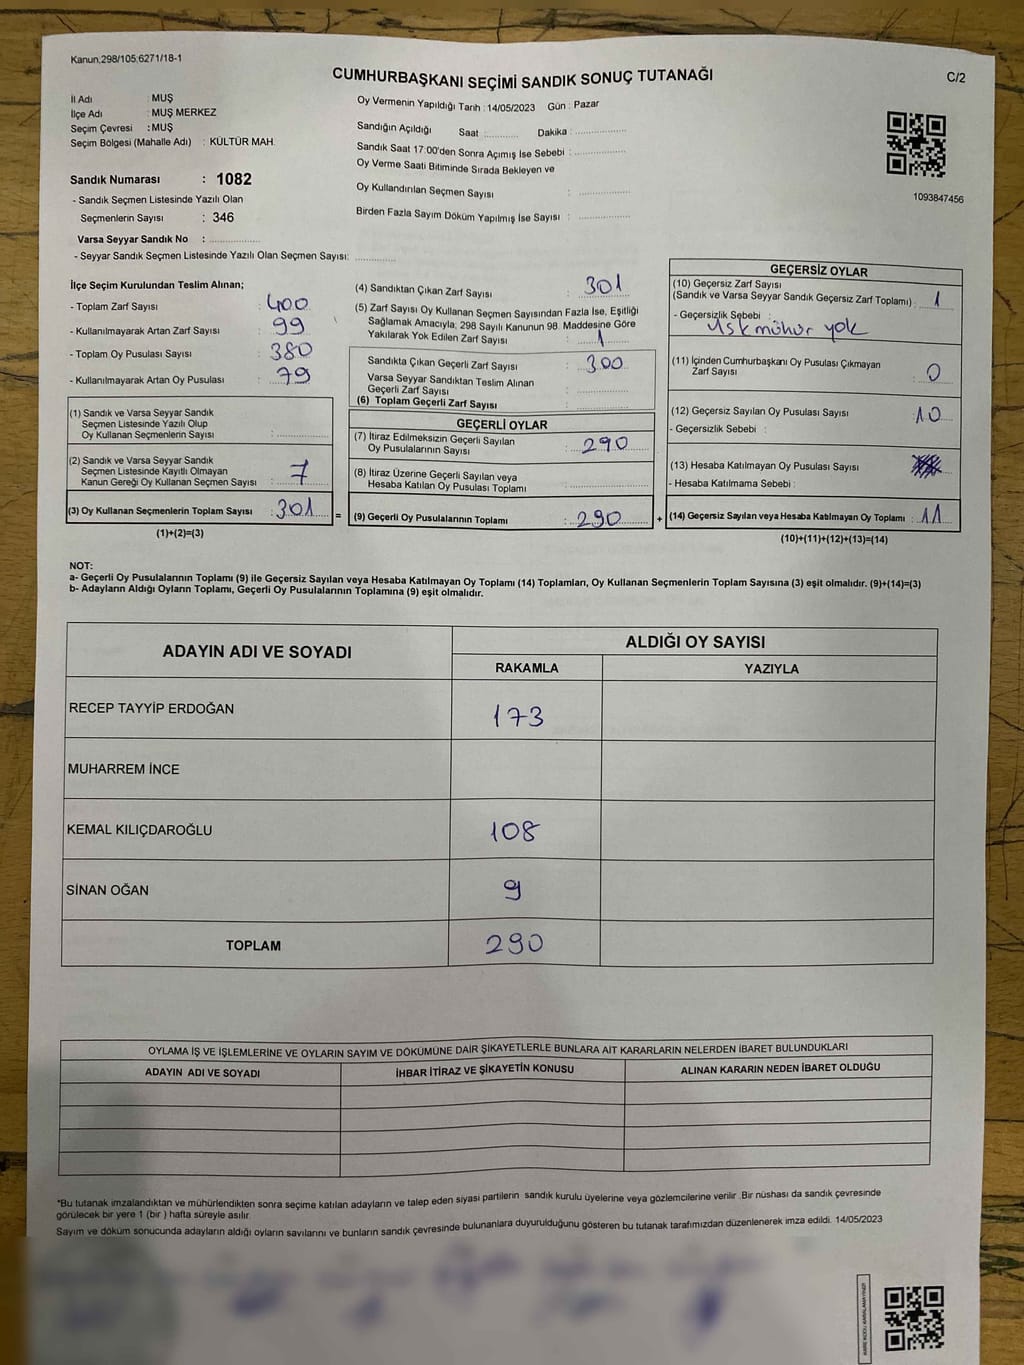 Kanun,298/105;6271/18-1
CUMHURBAŞKANI SEÇİMİ SANDIK SONUÇ TUTANAĞI
C/2
İl Adı : MUŞ
İlçe Adı : MUŞ MERKEZ
Seçim Çevresi : MUŞ
Seçim Bölgesi (Mahalle Adı) : KÜLTÜR MAH.
Sandık Numarası : 1082
- Sandık Seçmen Listesinde Yazılı Olan
Seçmenlerin Sayısı : 346
Varsa Seyyar Sandık No : ..............
- Seyyar Sandık Seçmen Listesinde Yazılı Olan Seçmen Sayısı: ............
Oy Vermenin Yapıldığı Tarih : 14/05/2023 Gün : Pazar
Sandığın Açıldığı Saat ........... Dakika : ................
Sandık Saat 17:00'den Sonra Açımış İse Sebebi : ................
Oy Verme Saati Bitiminde Sırada Bekleyen ve
Oy Kullandırılan Seçmen Sayısı : ................
Birden Fazla Sayım Döküm Yapılmış İse Sayısı : ................
1093847456
İlçe Seçim Kurulundan Teslim Alınan;
- Toplam Zarf Sayısı : 400
- Kullanılmayarak Artan Zarf Sayısı : 99
- Toplam Oy Pusulası Sayısı : 380
- Kullanılmayarak Artan Oy Pusulası : 79
(1) Sandık ve Varsa Seyyar Sandık
Seçmen Listesinde Yazılı Olup
Oy Kullanan Seçmenlerin Sayısı : ................
(2) Sandık ve Varsa Seyyar Sandık
Seçmen Listesinde Kayıtlı Olmayan
Kanun Gereği Oy Kullanan Seçmen Sayısı : 7
(3) Oy Kullanan Seçmenlerin Toplam Sayısı : 301
(1)+(2)=(3)
=
(4) Sandıktan Çıkan Zarf Sayısı : 301
(5) Zarf Sayısı Oy Kullanan Seçmen Sayısından Fazla İse, Eşitliği
Sağlamak Amacıyla; 298 Sayılı Kanunun 98. Maddesine Göre
Yakılarak Yok Edilen Zarf Sayısı : 1
Sandıkta Çıkan Geçerli Zarf Sayısı : 300
Varsa Seyyar Sandıktan Teslim Alınan
Geçerli Zarf Sayısı : ................
(6) Toplam Geçerli Zarf Sayısı : ................
GEÇERLİ OYLAR
(7) İtiraz Edilmeksizin Geçerli Sayılan
Oy Pusulalarının Sayısı : 290
(8) İtiraz Üzerine Geçerli Sayılan veya
Hesaba Katılan Oy Pusulası Toplamı : ................
(9) Geçerli Oy Pusulalarının Toplamı : 290
+
GEÇERSİZ OYLAR
(10) Geçersiz Zarf Sayısı
(Sandık ve Varsa Seyyar Sandık Geçersiz Zarf Toplamı) : 1
- Geçersizlik Sebebi :
üst mühür yok
(11) İçinden Cumhurbaşkanı Oy Pusulası Çıkmayan
Zarf Sayısı : 0
(12) Geçersiz Sayılan Oy Pusulası Sayısı : 10
- Geçersizlik Sebebi :
(13) Hesaba Katılmayan Oy Pusulası Sayısı :
- Hesaba Katılmama Sebebi :
(14) Geçersiz Sayılan veya Hesaba Katılmayan Oy Toplamı : 11
(10)+(11)+(12)+(13)=(14)
NOT:
a- Geçerli Oy Pusulalarının Toplamı (9) ile Geçersiz Sayılan veya Hesaba Katılmayan Oy Toplamı (14) Toplamları, Oy Kullanan Seçmenlerin Toplam Sayısına (3) eşit olmalıdır. (9)+(14)=(3)
b- Adayların Aldığı Oyların Toplamı, Geçerli Oy Pusulalarının Toplamına (9) eşit olmalıdır.
ADAYIN ADI VE SOYADI
ALDIĞI OY SAYISI
RAKAMLA YAZIYLA
RECEP TAYYİP ERDOĞAN 173
MUHARREM İNCE
KEMAL KILIÇDAROĞLU 108
SİNAN OĞAN 9
TOPLAM 290
OYLAMA İŞ VE İŞLEMLERİNE VE OYLARIN SAYIM VE DÖKÜMÜNE DAİR ŞİKAYETLERLE BUNLARA AİT KARARLARIN NELERDEN İBARET BULUNDUKLARI
ADAYIN ADI VE SOYADI İHBAR İTİRAZ VE ŞİKAYETİN KONUSU ALINAN KARARIN NEDEN İBARET OLDUĞU
*Bu tutanak imzalandıktan ve mühürlendikten sonra seçime katılan adayların ve talep eden siyasi partilerin sandık kurulu üyelerine veya gözlemcilerine verilir .Bir nüshası da sandık çevresinde
görülecek bir yere 1 (bir ) hafta süreyle asılır.
Sayım ve döküm sonucunda adayların aldığı oyların sayılarını ve bunların sandık çevresinde bulunanlara duyurulduğunu gösteren bu tutanak tarafımızdan düzenlenerek imza edildi. 14/05/2023